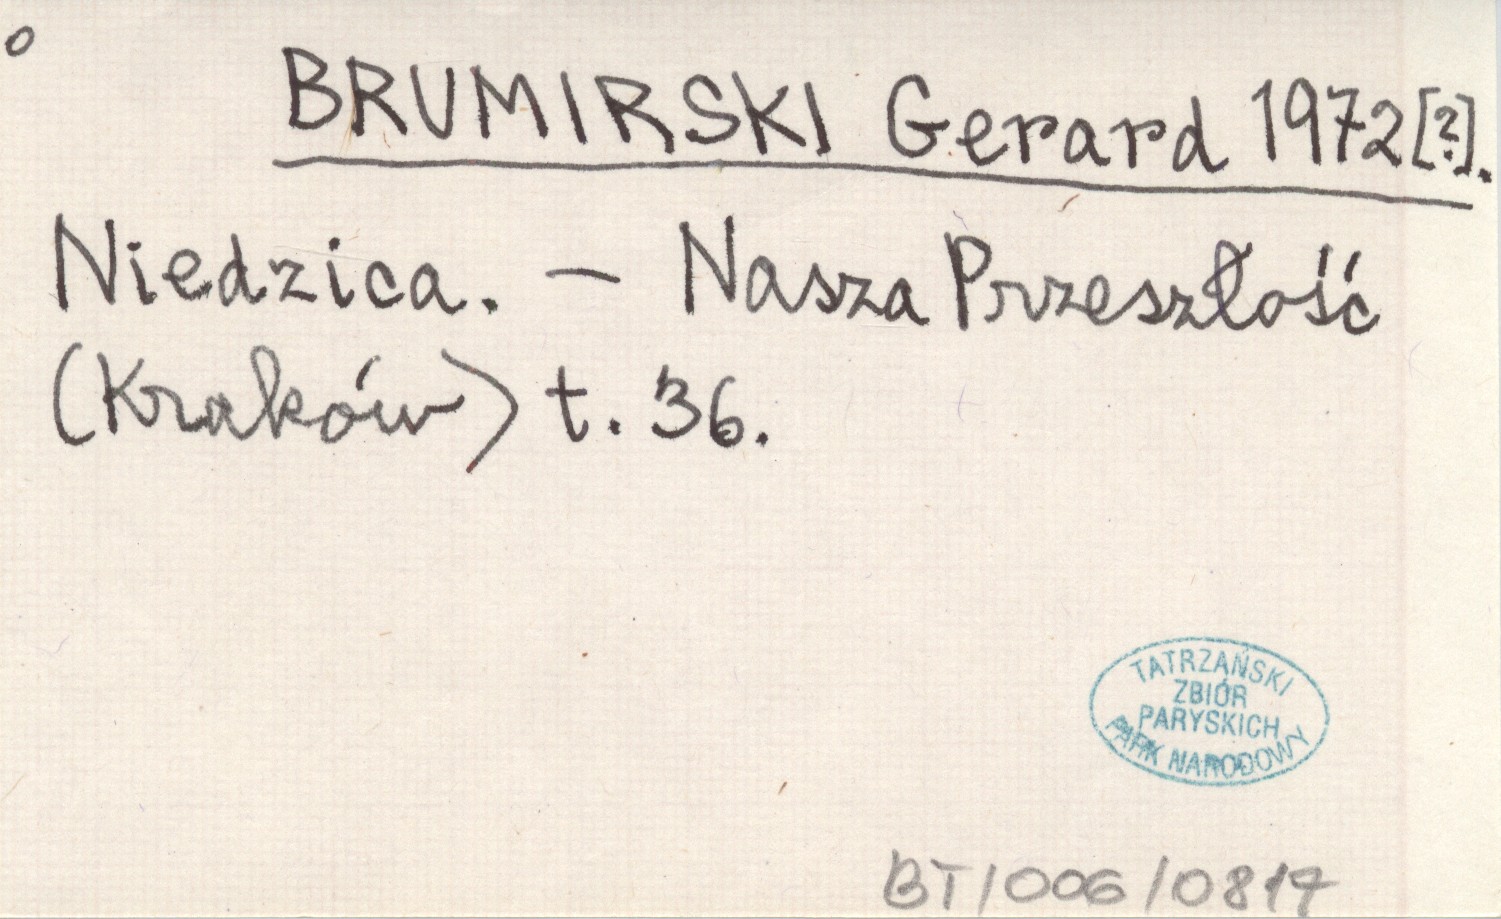 o
BRUMIRSKI Gerard 1972[?].
Niedzica. — Nasza Przeszłość
(Kraków) t. 36.
TATRZAŃSKI
ZBIÓR
PARYSKICH
PARK NARODOWY
BT/006/0817